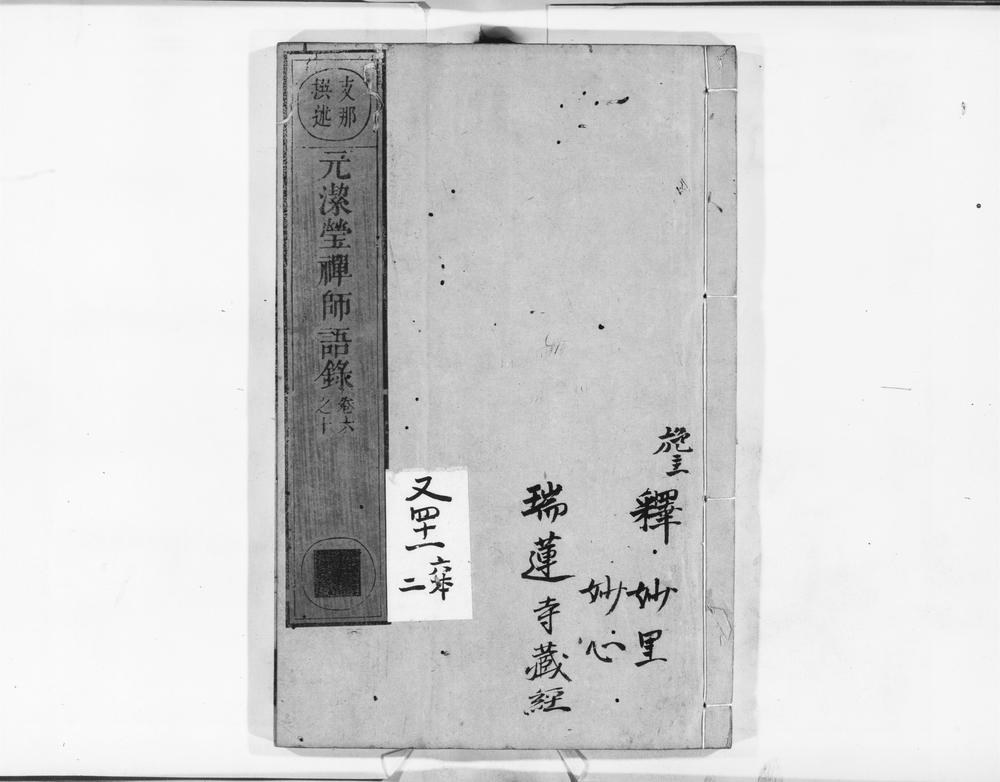 施主
釋妙里
妙心
瑞蓮寺藏經
支那
撰述
元潔瑩禪師語錄
卷六
之十
又四十一
二